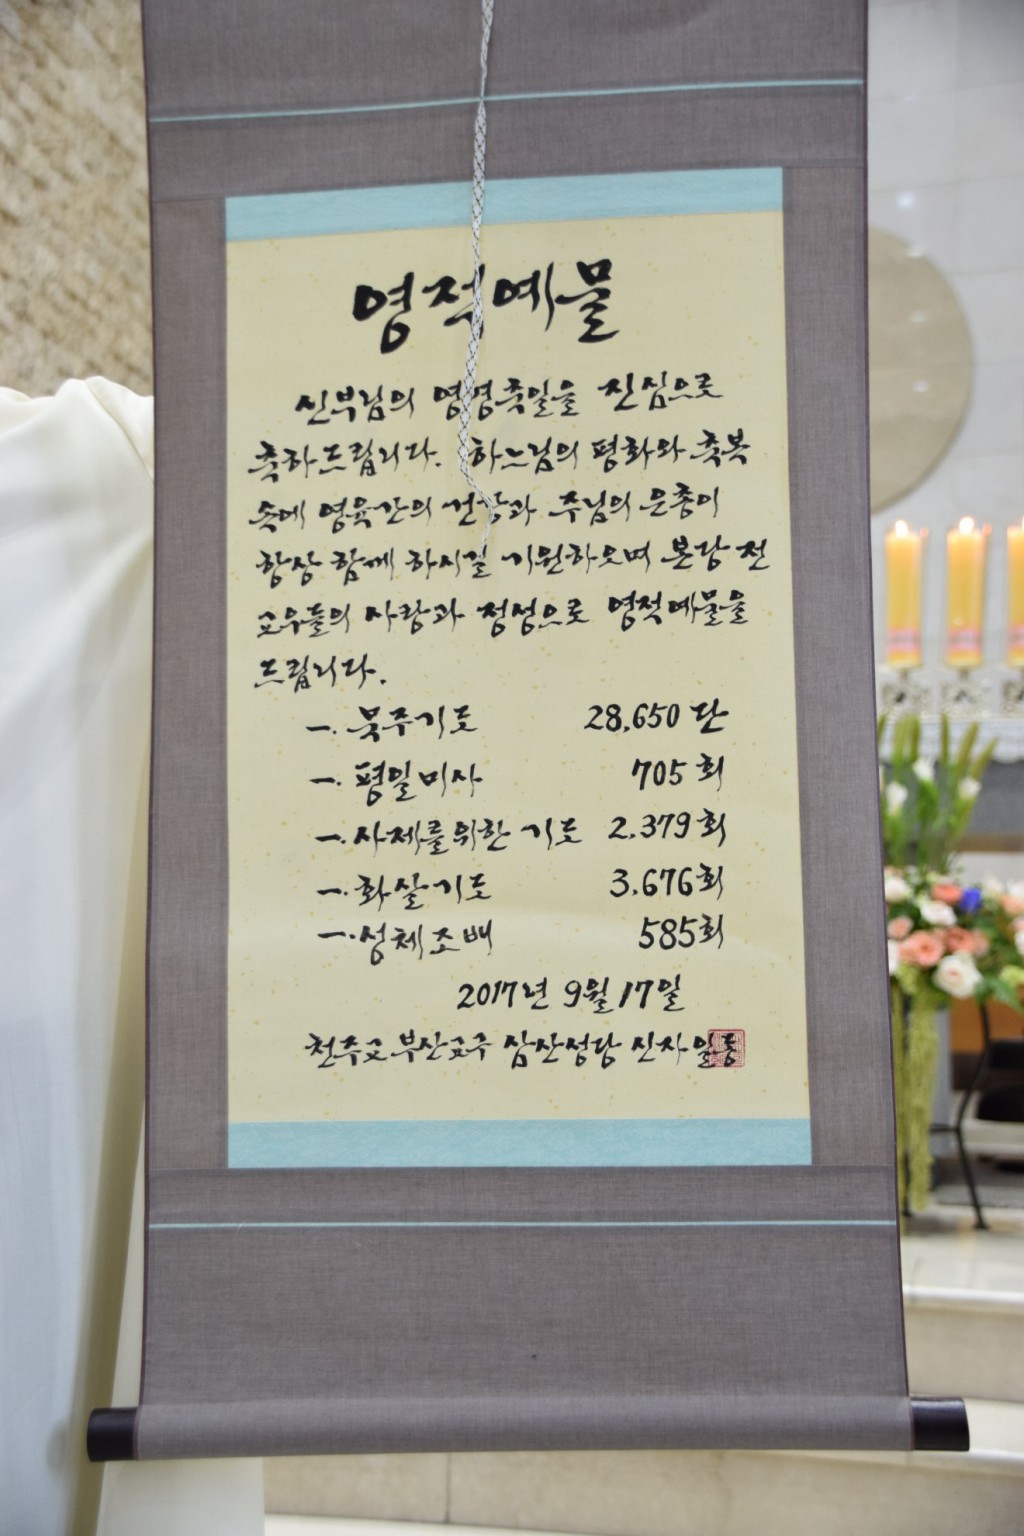 영적예물
신부님의 영명축일을 진심으로
축하드립니다. 하느님의 평화와 축복
속에 영육간의 건강과 주님의 은총이
항상 함께 하시길 기원하오며 본당 전
교우들의 사랑과 정성으로 영적예물을
드립니다.
一. 묵주기도 28,650 단
一. 평일미사 705 회
一. 사제를위한 기도 2,379 회
一. 화살기도 3,676회
一. 성체조배 585회
2017년 9월 17일
천주교 부산교구 삼산성당 신자 일동